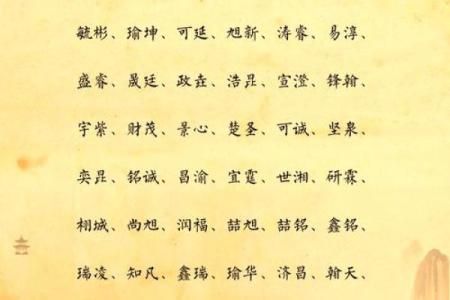 毓彬、瑜坤、可延、旭新、涛睿、易淳、
盛睿、晟廷、政垚、浩昆、宣澄、锋翰、
宇紫、财茂、景心、楚圣、可诚、坚泉、
奕昆、铭诚、昌渝、宜霆、世湘、研霖、
栩城、尚旭、润福、喆旭、喆铭、鑫铭、
瑞凌、知凡、鑫瑞、瑜华、济昌、翰天、